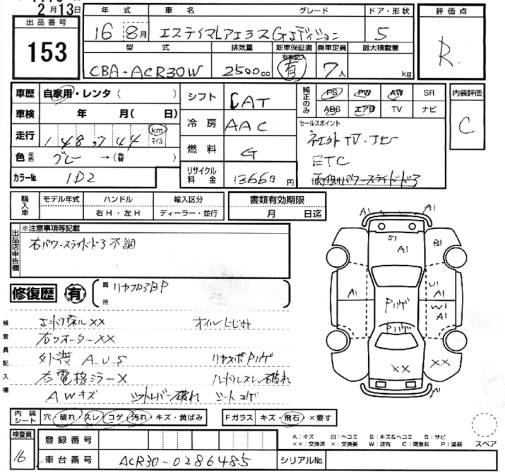 2月13日
出品番号
153
年式
グレード
ドア・形状
評価点
16年8月
エスティマLアエラスGエディション
5
R
型式
排気量
新車保証書
乗車定員
最大積載量
CBA-ACR30W
2500cc
有
7人
kg
車歴
自家用・レンタ(
)
シフト
CAT
純正のみ
PS
PW
AW
SR
ABS
エアB
TV
ナビ
内装評価
C
車検
年
月(
日)
冷房
AAC
セールスポイント
社外TV・ナビ
ETC
走行
148,744
km
マイル
色
グレー
→(替
)
燃料
G
カラーNo.
1D2
リサイクル料金
13660円
輸入車
モデル年式
ハンドル
輸入区分
書類有効期限
右H・左H
ディーラー・並行
月
日迄
出品店申告欄
※注意事項等記載
右パワースライドドア不調
修復歴
有
箇所
リヤフロアBP
検査員記入欄
右クォーターXX
外装 A.U.S
右電格ミラーX
AWキズ
シートコゲ
内装シート
穴
破れ
スレ
コゲ
汚れ
キズ・黄ばみ
Fガラス
キズ・飛石
×要す
検査員
16
登録番号
車台番号
ACR30-0286485
シリアルNo.
A1
A1
S1
A1
B1
A1
U1
W1
A1
A1
Pハゲ
Pハゲ
XX
XX
A:キズ
U:ヘコミ
B:キズ&ヘコミ
S:サビ
XX:交換済
X:交換要
W:波有
C:腐食有
P:塗装
スペア